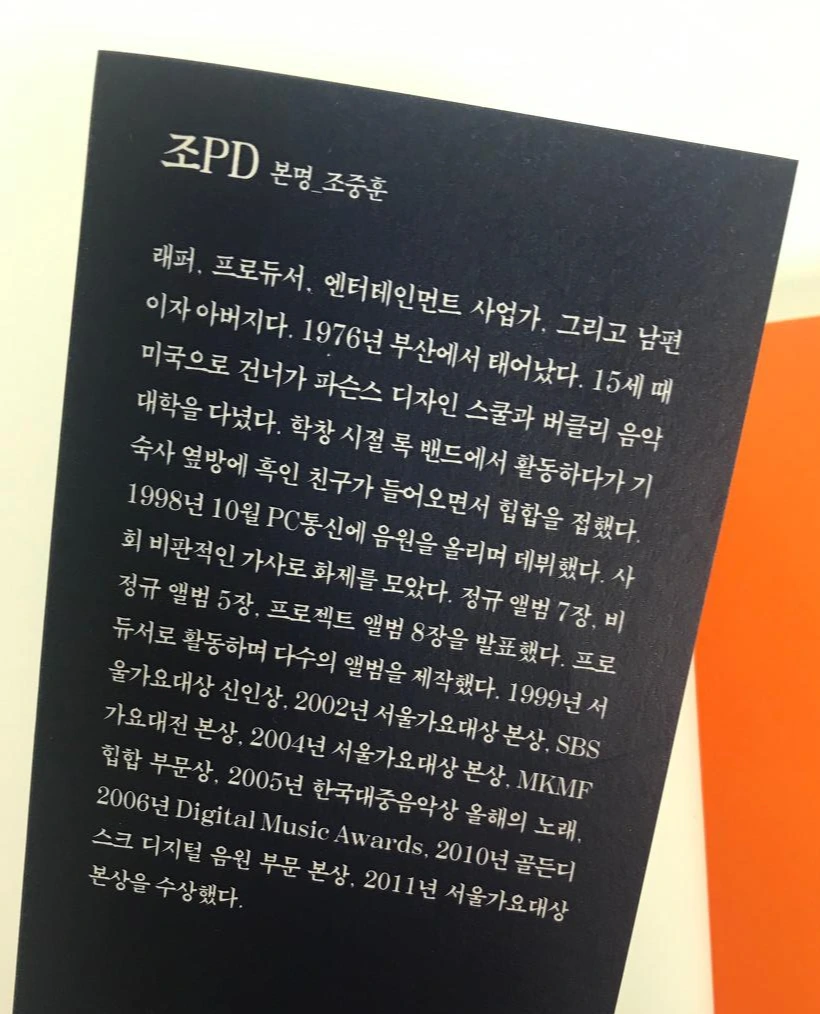 조PD 본명_조중훈
래퍼, 프로듀서, 엔터테인먼트 사업가, 그리고 남편
이자 아버지다. 1976년 부산에서 태어났다. 15세 때
미국으로 건너가 파슨스 디자인 스쿨과 버클리 음악
대학을 다녔다. 학창 시절 록 밴드에서 활동하다가 기
숙사 옆방에 흑인 친구가 들어오면서 힙합을 접했다.
1998년 10월 PC통신에 음원을 올리며 데뷔했다. 사
회 비판적인 가사로 화제를 모았다. 정규 앨범 7장, 비
정규 앨범 5장, 프로젝트 앨범 8장을 발표했다. 프로
듀서로 활동하며 다수의 앨범을 제작했다. 1999년 서
울가요대상 신인상, 2002년 서울가요대상 본상, SBS
가요대전 본상, 2004년 서울가요대상 본상, MKMF
힙합 부문상, 2005년 한국대중음악상 올해의 노래,
2006년 Digital Music Awards, 2010년 골든디
스크 디지털 음원 부문 본상, 2011년 서울가요대상
본상을 수상했다.